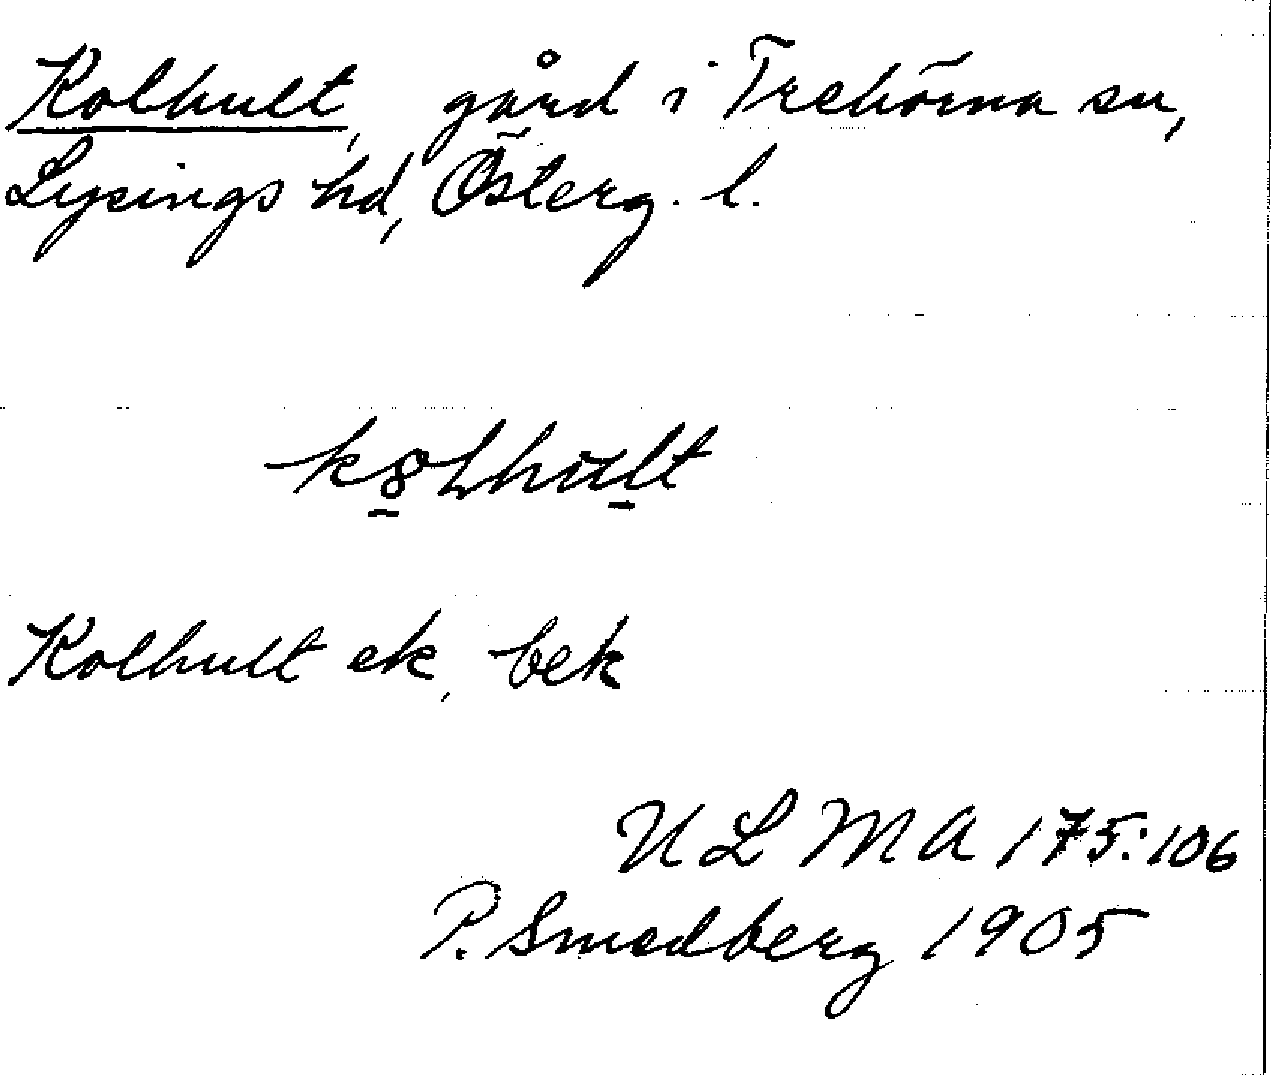 Kolhult, gård i Trehörna sn,
Lysings hd, Österg. l.
k8Lhult
Kolhult ek, bek
ULMA 175:106
P. Smedberg 1905